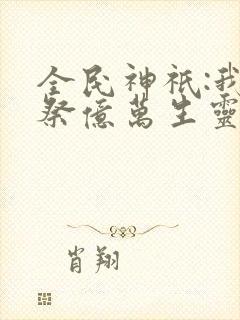 全民神祇:我
祭億萬生靈
肖翔